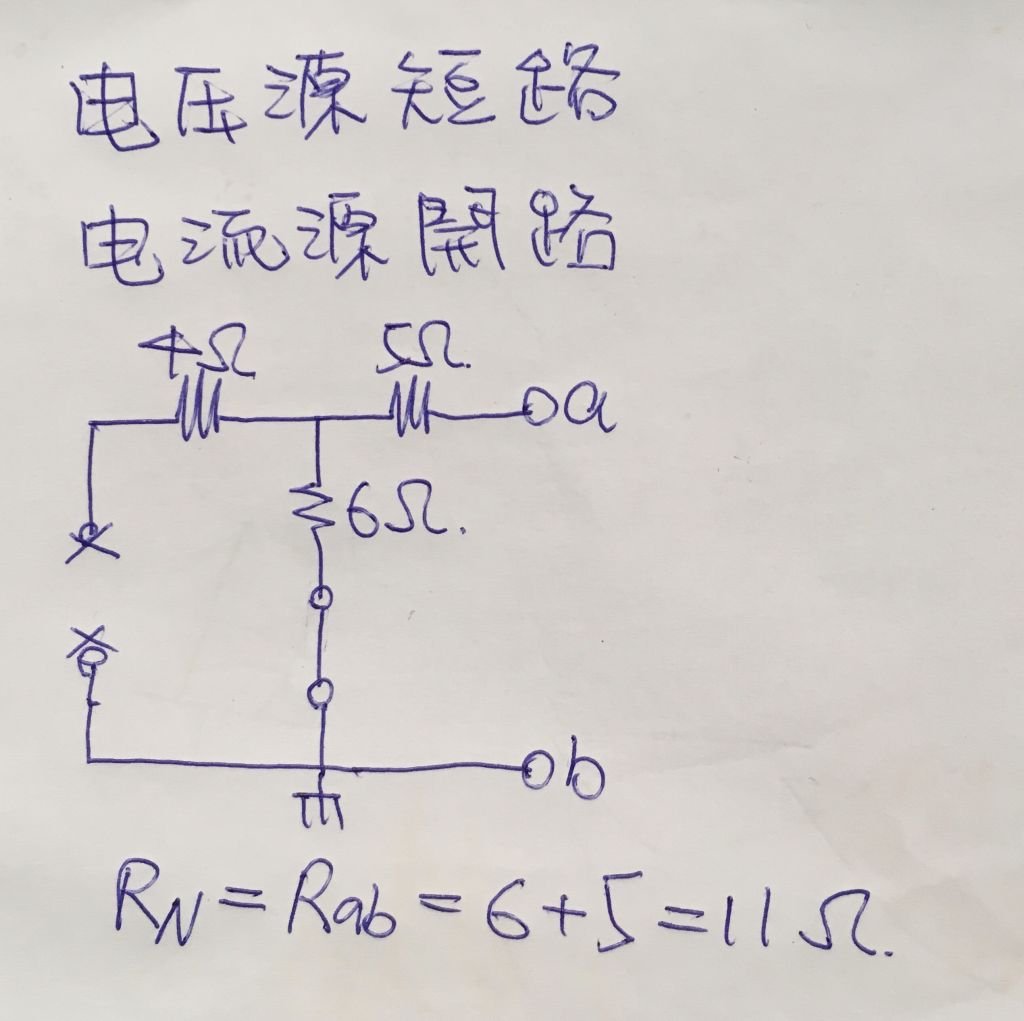 电压源短路
电流源開路
4Ω 5Ω.
a
6Ω.
b
R_N = R_ab = 6+5 = 11Ω.